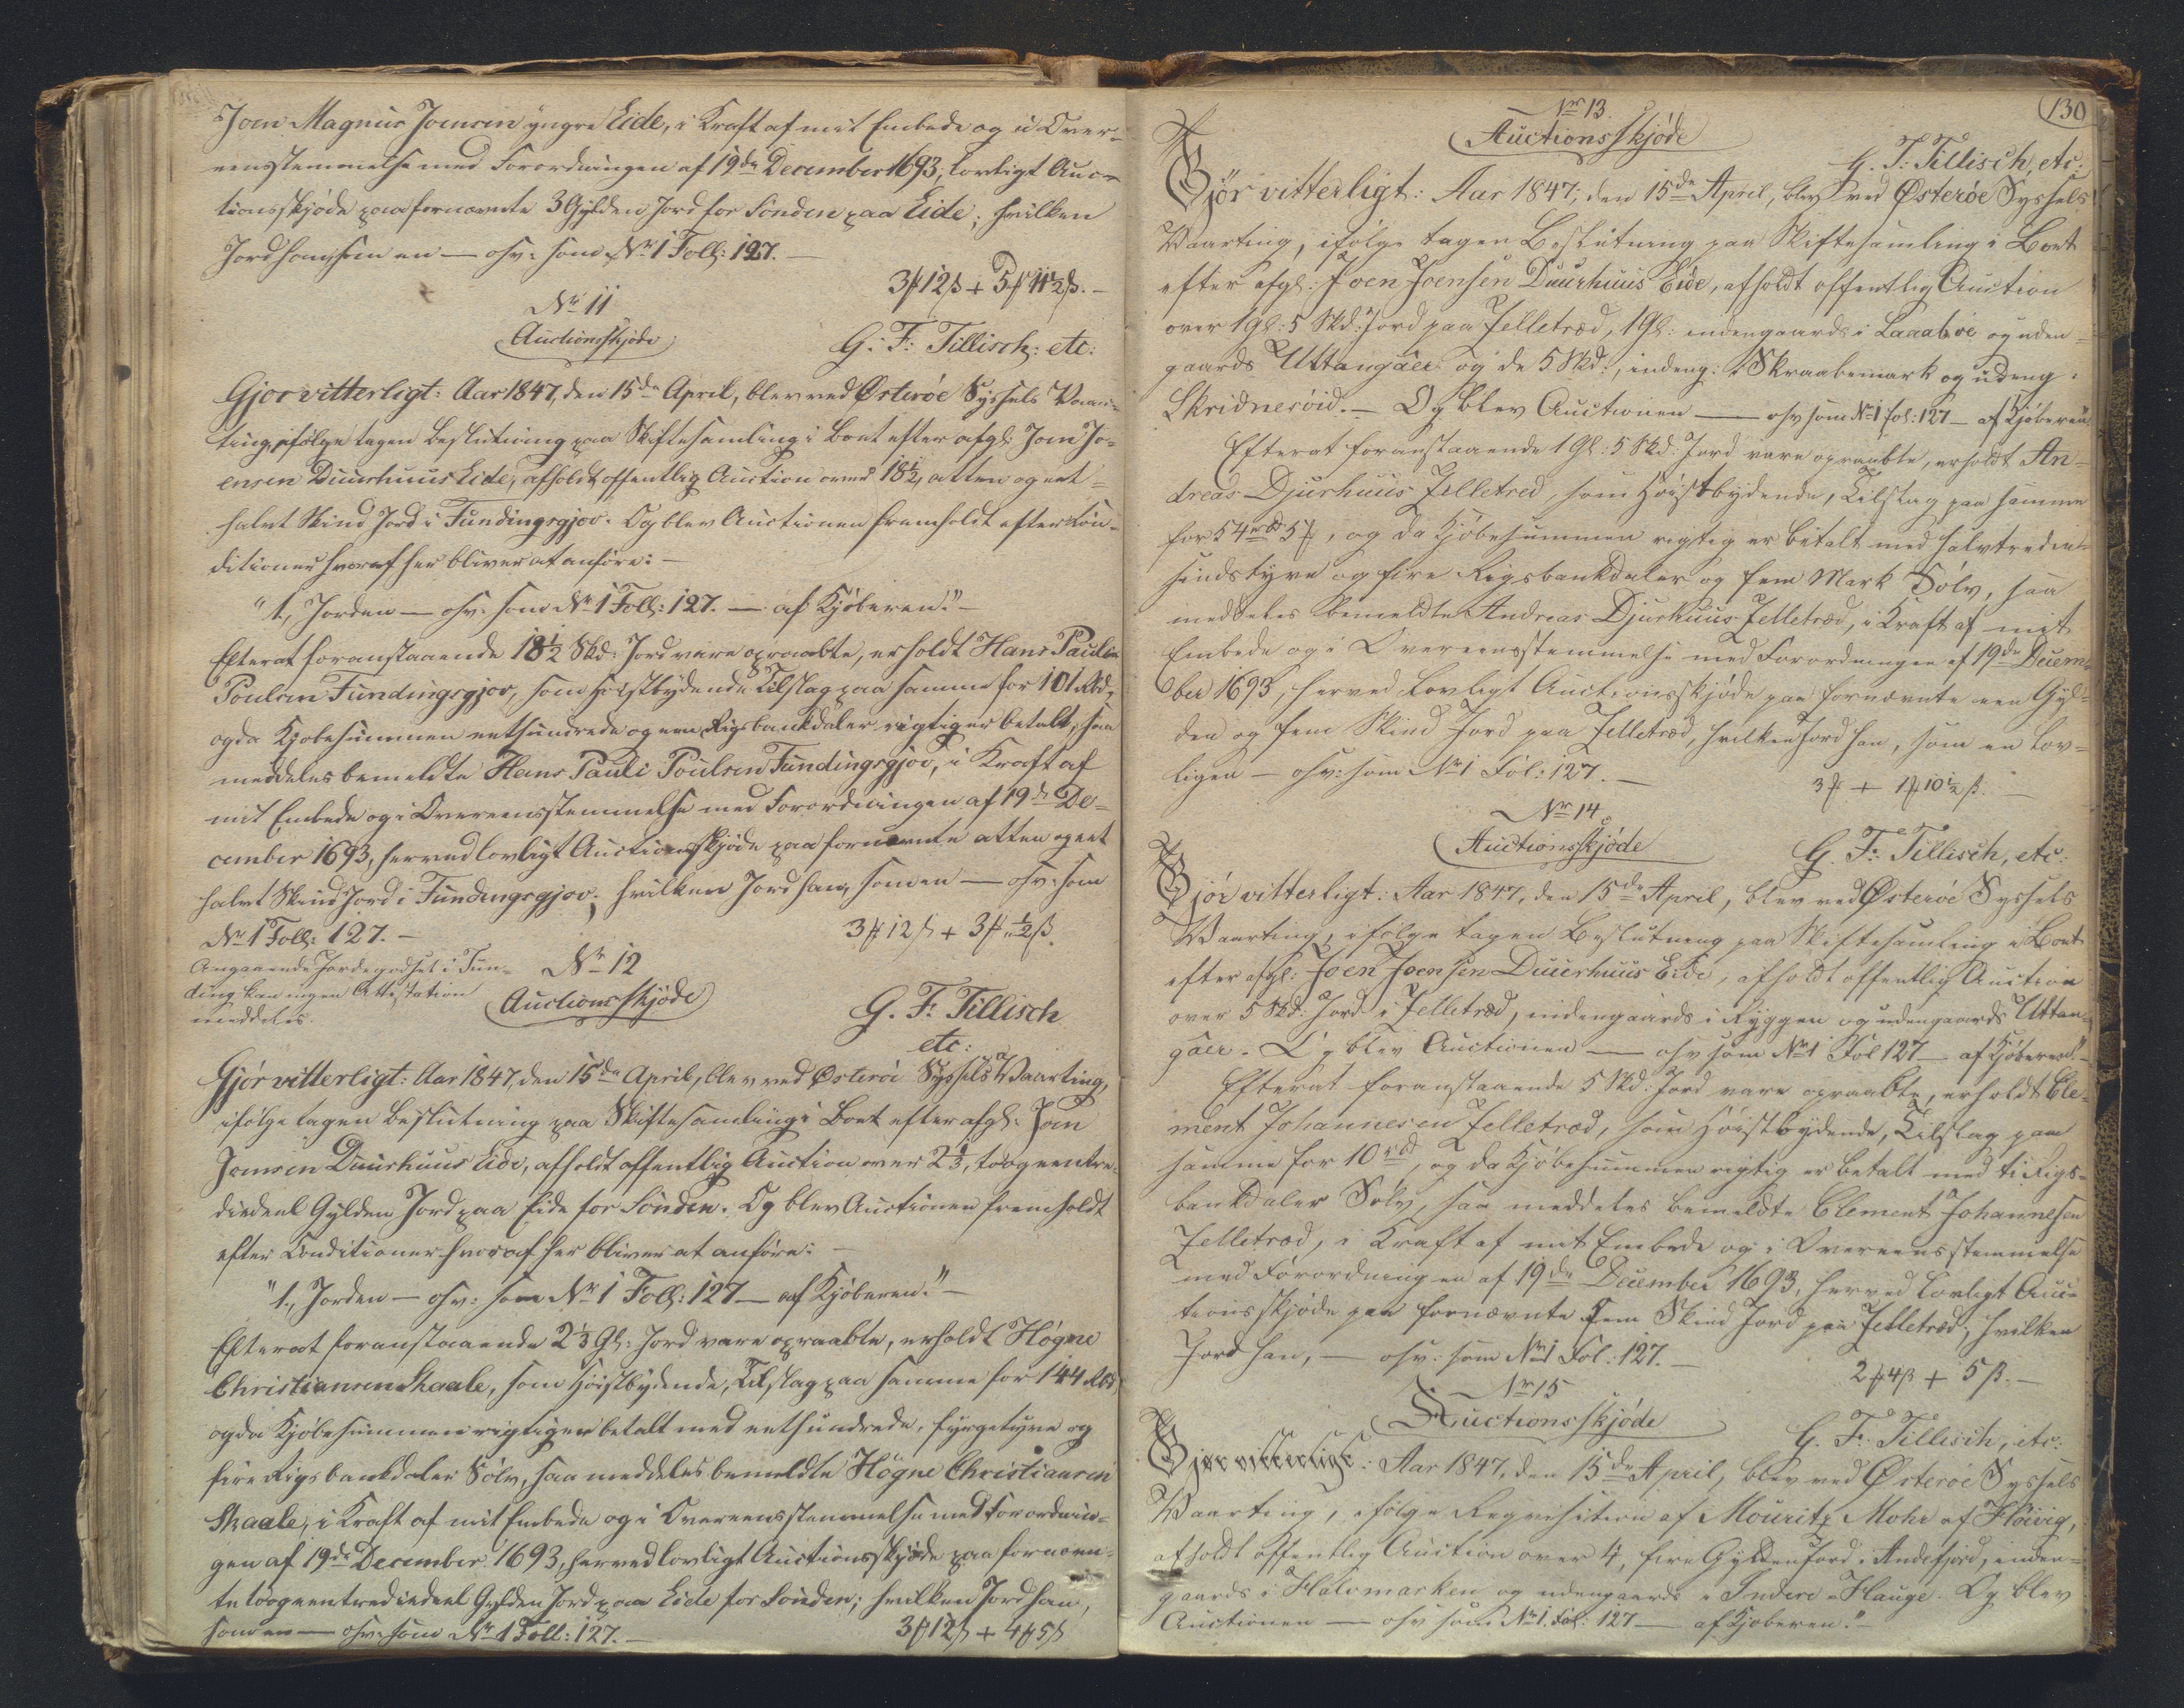 Joen Magnus Joensen yngre Eide, i Kraft af mit Embede og i Over-
eensstemmelse med Forordningen af 19de December 1693, lovligt Auc-
tionsskjøde paa fornævnte 3 Gylden Jord for Sønden paa Eide; hvilken
Jord han, som en — osv: som No 1 Foll: 127. —
3 ₰ 12 ß + 5 ₰ 11½ ß. —
No 11
Auctionsskjøde
G. F. Tillisch: etc:
Gjør vitterligt: Aar 1847, den 15de April, blev ved Østerøe Syssels Vaar-
ting, ifølge tagen Beslutning paa Skiftesamling i Boet efter afgl: Joen Jo-
ensen Duurhuus Eide, afholdt offentlig Auction over 18½, atten og eet
halvt Skind Jord i Fundingsgjov. Og blev Auctionen fremholdt efter Con-
ditioner hvoraf her bliver at anføre: —
"1., Jorden — osv: som No 1 Foll: 127. — af Kjøberen." —
Efterat foranstaaende 18½ Skd: Jord vare opraabte, erholdt Hans Pauli
Poulsen Fundingsgjov, som høistbydende Tilslag paa samme for 101 Rbd,
og da Kjøbesummen eethundrede og een Rigsbankdaler rigtig er betalt, saa
meddeles bemeldte Hans Pauli Poulsen Fundingsgjov, i Kraft af
mit Embede og i Overeensstemmelse med Forordningen af 19de De-
cember 1693, herved lovligt Auctionsskjøde paa fornævnte atten og eet
halvt Skind Jord i Fundingsgjov; hvilken Jord han, som en — osv: som
No 1 Foll: 127. —
3 ₰ 12 ß + 3 ₰ „ ½ ß.
Angaaende Jordegodset i Fun-
ding kan ingen Attestation
meddeles.
No 12
Auctionsskjøde
G. F. Tillisch
etc:
Gjør vitterligt: Aar 1847, den 15de April, blev ved Østerøe Syssels Vaarting,
ifølge tagen Beslutning paa Skiftesamling i Boet efter afgl: Joen
Joensen Duurhuus Eide, afholdt offentlig Auction over 2⅓, to og een tre-
diedeel Gylden Jord paa Eide for Sønden. Og blev Auctionen fremholdt
efter Conditioner hvoraf her bliver at anføre: —
"1., Jorden — osv: som No 1 Foll: 127 — af Kjøberen." —
Efterat foranstaaende 2⅓ Gl: Jord vare opraabte, erholdt Høgne
Christiansen Skaale, som høistbydende, Tilslag paa samme for 144 Rbd,
og da Kjøbesummen rigtig er betalt med eethundrede, fyrgetyve og
fire Rigsbankdaler Sølv, saa meddeles bemeldte Høgne Christiansen
Skaale, i Kraft af mit Embede og i Overeensstemmelse med Forordnin-
gen af 19de December 1693, herved lovligt Auctionsskjøde paa fornævn-
te to og een trediedeel Gylden Jord paa Eide for Sønden; hvilken Jord han,
som en — osv: som No 1 Foll: 127. —
3 ₰ 12 ß + 4 ₰ 5 ß
130
No 13.
Auctionsskjøde
G. F. Tillisch, etc:
Gjør vitterligt: Aar 1847, den 15de April, blev ved Østerøe Syssels
Vaarting, ifølge tagen Beslutning paa Skiftesamling i Boet
efter afgl: Joen Joensen Duurhuus Eide, afholdt offentlig Auction
over 1 Gl: 5 Skd: Jord paa Jelletrød, 1 Gl: indengaards i Laaabøe og uden-
gaards Uttangaer og de 5 Skd:, indeng: i Skraabemark og udeng.
Skridnerøid. — Og blev Auctionen — osv som No 1 fol: 127 — af Kjøberen."
Efterat foranstaaende 1 Gl: 5 Skd: Jord vare opraabte, erholdt An-
dreas Djurhuus Jelletrød, som høistbydende, Tilslag paa samme
for 54 rbd 5 ₰, og da Kjøbesummen rigtig er betalt med halvtredie-
sindstyve og fire Rigsbankdaler og fem Mark Sølv, saa
meddeles bemeldte Andreas Djurhuus Jelletrød, i Kraft af mit
Embede og i Overeensstemmelse med Forordningen af 19de Decem-
ber 1693, herved lovligt Auctionsskjøde paa fornævnte een Gyl-
den og fem Skind Jord paa Jelletrød, hvilken Jord han, som en lov-
ligen — osv: som No 1 Fol: 127. —
3 ₰ + 1 ₰ 10½ ß. —
No 14.
Auctionsskjøde
G. F. Tillisch, etc:
Gjør vitterligt: Aar 1847, den 15de April, blev ved Østerøe Syssels
Vaarting, ifølge tagen Beslutning paa Skiftesamling i Boet
efter afgl: Joen Joensen Duurhuus Eide, afholdt offentlig Auction
over 5 Skd: Jord i Jelletrød, indengaards i Ryggen og udengaards Uttan-
gaer. Og blev Auctionen — osv som No 1 Fol 127 — af Kjøberen." —
Efterat foranstaaende 5 Skd: Jord vare opraabte, erholdt Cle-
ment Johannesen Jelletrød, som høistbydende, Tilslag paa
samme for 10 rbd, og da Kjøbesummen rigtig er betalt med ti Rigs-
bankdaler Sølv, saa meddeles bemeldte Clement Johannesen
Jelletrød, i Kraft af mit Embede og i Overeensstemmelse
med Forordningen af 19de December 1693, herved lovligt Auc-
tionsskjøde paa fornævnte fem Skind Jord paa Jelletrød; hvilken
Jord han, — osv: som No 1 Fol: 127. —
2 ₰ 4 ß + 5 ß. —
No 15
Auctionsskjøde
G. F. Tillisch, etc:
Gjør vitterligt: Aar 1847, den 15de April, blev ved Østerøe Syssels
Vaarting, ifølge Reqvisition af Mouritz Mohr af Høivig,
afholdt offentlig Auction over 4, fire Gylden Jord i Andefjord, inden-
gaards i Halvmarken og udengaards i Indere-Hauge. Og blev
Auctionen — osv som No 1. Fol: 127 — af Kjøberen." —